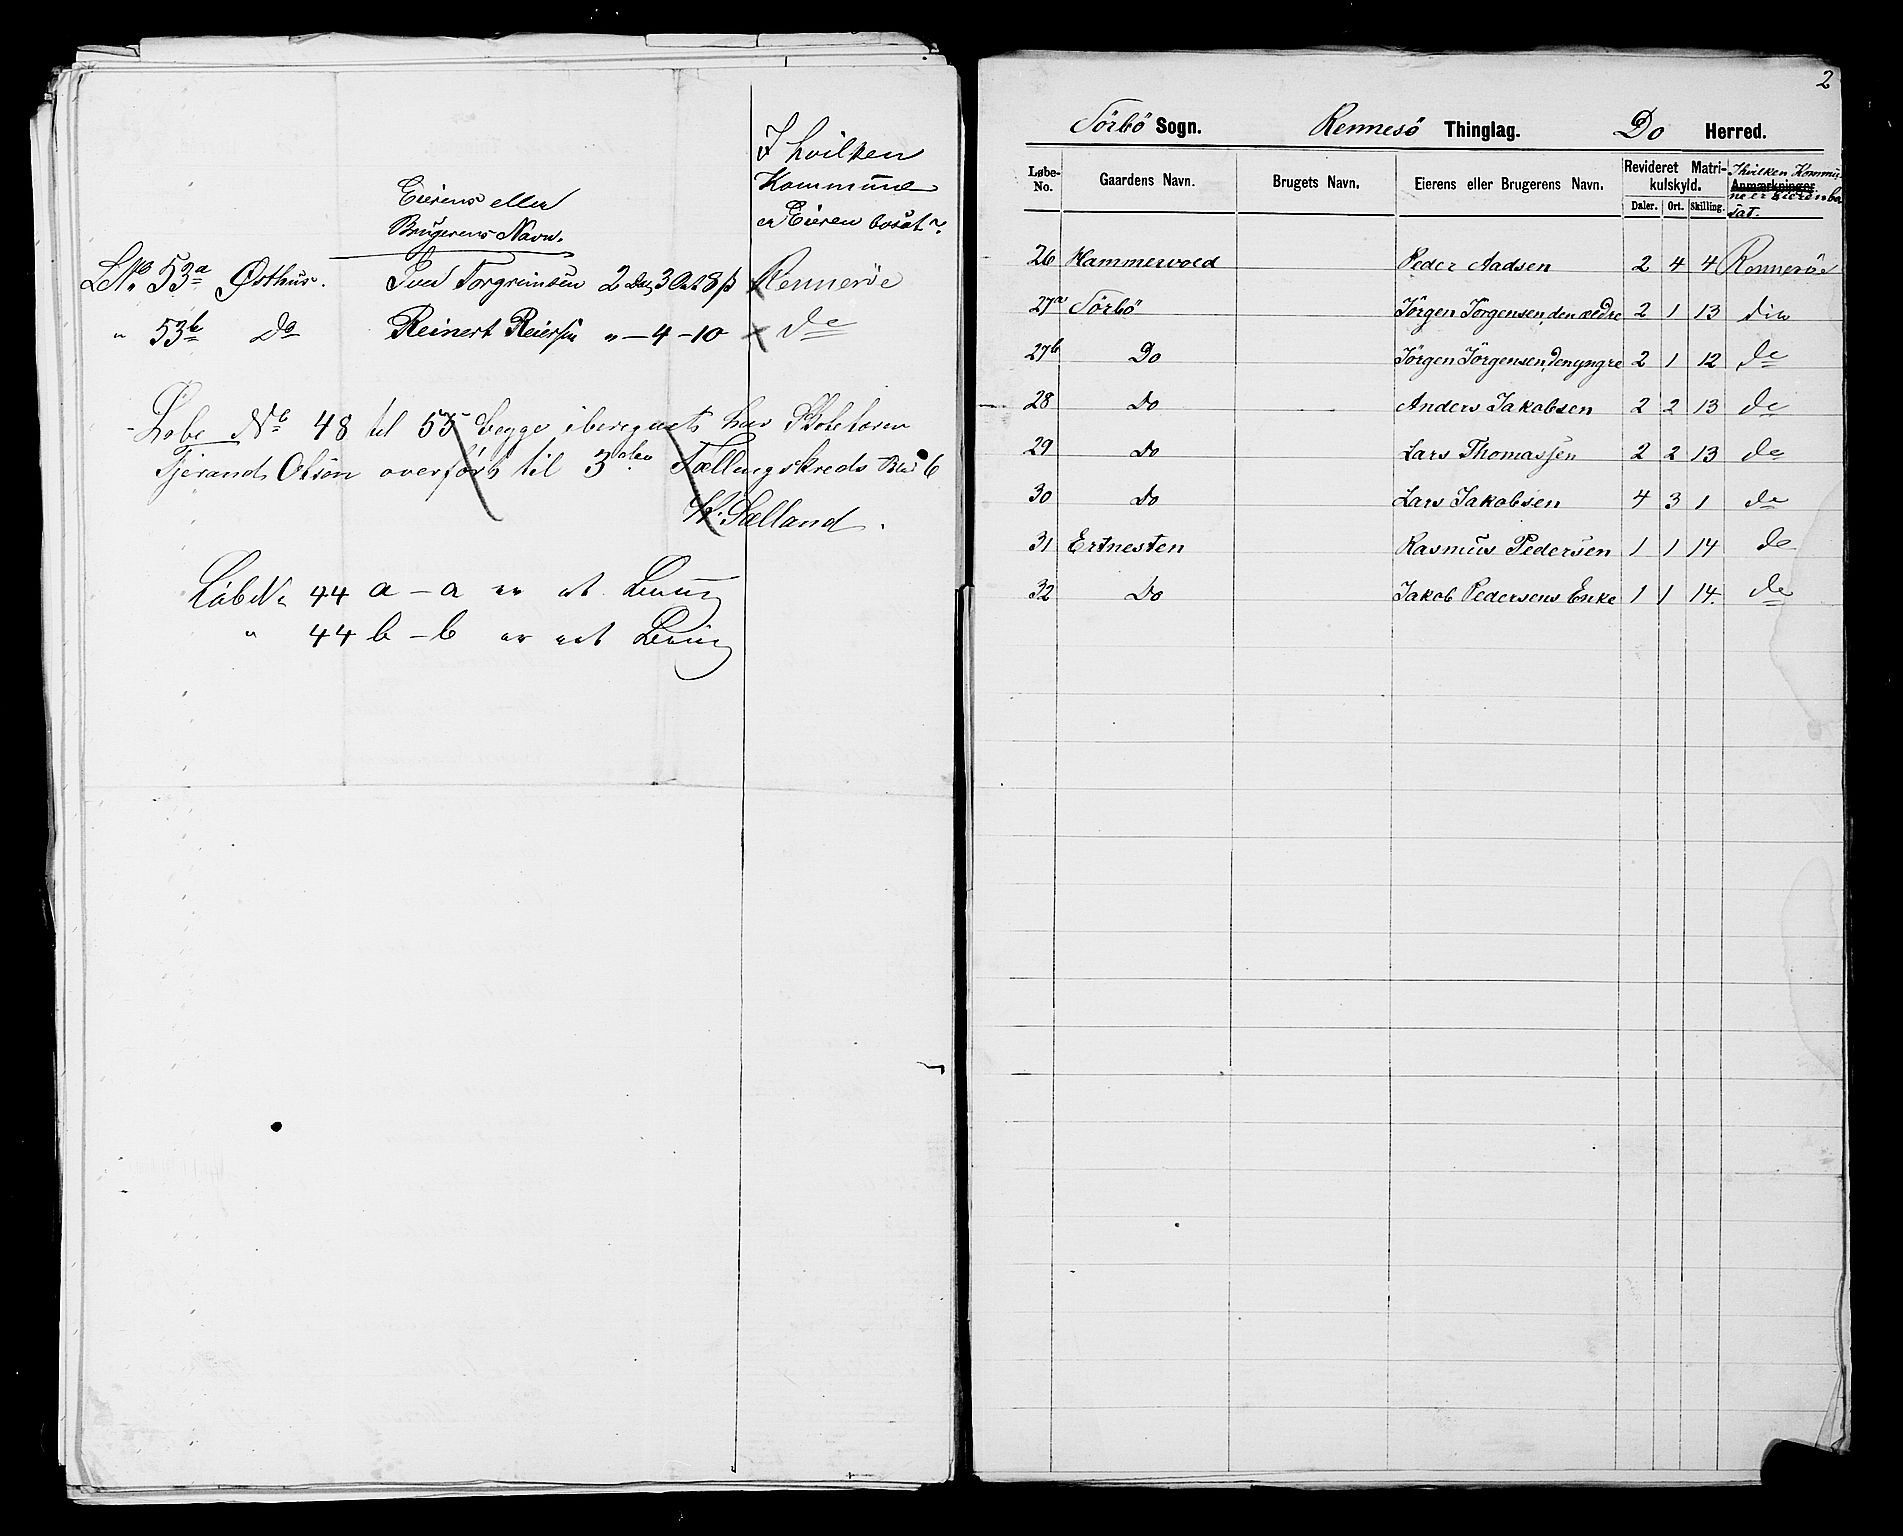 I hvilken
Kommune
er Eieren bosat?
Eierens eller
Brugerens Navn.
LNo 53a Østhus. Iver Torgrimsen 2 Dlr 3 Ort 8 ß Rennesöe
" 53b Do Reinert Reiersen " – 4 – 10 do
Löbe No 48 til 55 begge iberegnet har Skolelærer
Tjerand Olsön overført til 3die Tællingskreds Blad 6
W. Sælland.
LöbeNo 44 a – a er et Brug
" 44 b – b er et Brug
2
Sörbö Sogn. Rennesö Thinglag. Do Herred.
Løbe-No. Gaardens Navn. Brugets Navn. Eierens eller Brugerens Navn. Revideret Matrikulskyld. Daler. Ort. Skilling. Anmærkninger. I hvilken Kommune er Eieren bosat.
26 Hammervold Peder Aadsen 2 4 4 Rennesöe
27a Sörbö Jörgen Jörgensen, den ældre 2 1 13 dito
27b Do Jörgen Jörgensen, den yngre 2 1 12 do
28 Do Anders Jakobsen 2 2 13 do
29 Do Lars Thomassen 2 2 13 do
30 Do Lars Jakobsen 4 3 1 do
31 Ertnesten Rasmus Pedersen 1 1 14 do
32 Do Jakob Pedersens Enke 1 1 14. do